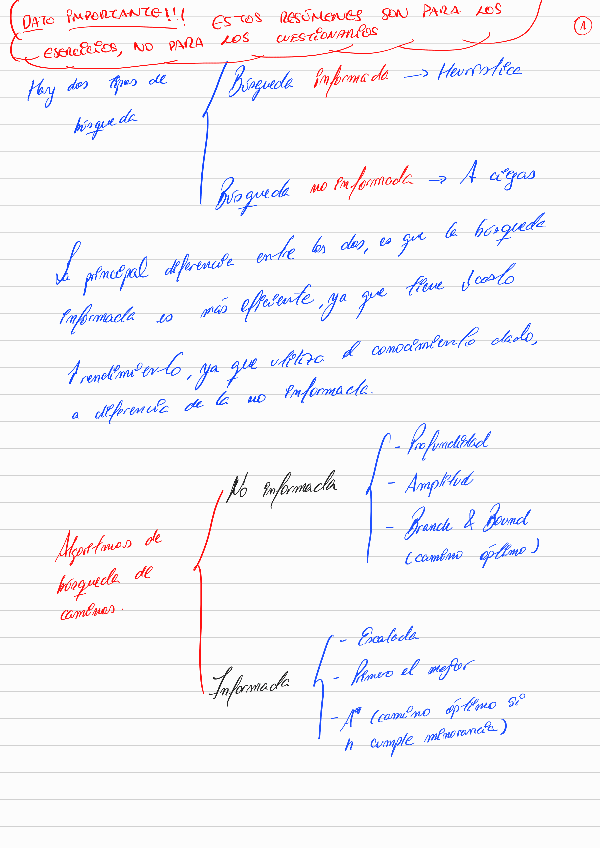 DATO IMPORTANTE!!! ESTOS RESÚMENES SON PARA LOS
EJERCICIOS, NO PARA LOS CUESTIONARIOS
1
Hay dos tipos de
búsqueda
Búsqueda informada → Heurística
Búsqueda no informada → A ciegas
La principal diferencia entre los dos, es que la búsqueda
informada es más eficiente, ya que tiene ↓costo
↑rendimiento, ya que utiliza el conocimiento dado,
a diferencia de la no informada.
Algoritmos de
búsqueda de
caminos.
No informada
- Profundidad
- Amplitud
- Branch & Bound
(camino óptimo)
Informada
- Escalada
- Primero el mejor
- A* (camino óptimo si
h cumple minorancia)